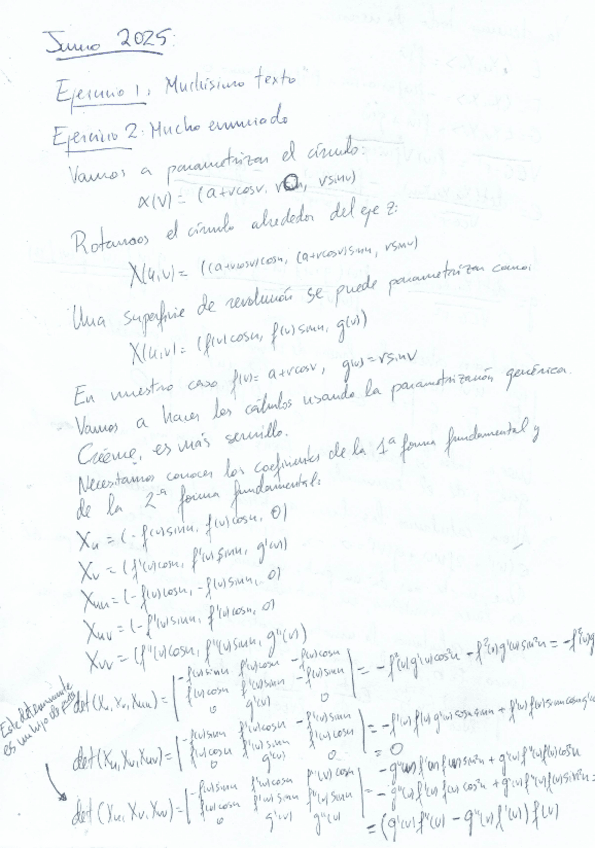 Junio 2025:
Ejercicio 1. Muchísimo texto
Ejercicio 2: Mucho enunciado
Vamos a parametrizar el círculo:
α(v) = (a+rcosv, 0, rsinv)
Rotamos el círculo alrededor del eje z:
X(u,v) = ((a+rcosv)cosu, (a+rcosv)sinu, rsinv)
Una superficie de revolución se puede parametrizar como:
X(u,v) = (f(v)cosu, f(v)sinu, g(v))
En nuestro caso f(v) = a+rcosv, g(v) = rsinv
Vamos a hacer los cálculos usando la parametrización genérica.
Créeme, es más sencillo.
Necesitamos conocer los coeficientes de la 1ª forma fundamental y
de la 2ª forma fundamental:
Xu = (-f(v)sinu, f(v)cosu, 0)
Xv = (f'(v)cosu, f'(v)sinu, g'(v))
Xuu = (-f(v)cosu, -f(v)sinu, 0)
Xuv = (-f'(v)sinu, f'(v)cosu, 0)
Xvv = (f''(v)cosu, f''(v)sinu, g''(v))
Este determinante
es un
det(Xu, Xv, Xuu) = | -f(v)sinu f'(v)cosu -f(v)cosu |
| f(v)cosu f'(v)sinu -f(v)sinu | = -f²(v)g'(v)cos²u - f²(v)g'(v)sin²u = -f²(v)g
| 0 g'(v) 0 |
det(Xu, Xv, Xuv) = | -f(v)sinu f'(v)cosu -f'(v)sinu |
| f(v)cosu f'(v)sinu f'(v)cosu |
| 0 g'(v) 0 | = 0
det(Xu, Xv, Xvv) = | -f(v)sinu f'(v)cosu f''(v)cosu |
| f(v)cosu f'(v)sinu f''(v)sinu |
| 0 g'(v) g''(v) |
= -g''(v)f'(v)f(v)sin²u + g'(v)f''(v)f(v)cos²u
- g''(v)f'(v)f(v)cos²u + g'(v)f''(v)f(v)sin²u =
= (g'(v)f''(v) - g''(v)f'(v))f(v)